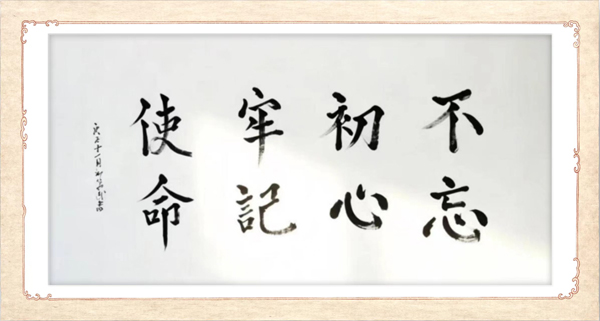 不忘
初心
牢記
使命